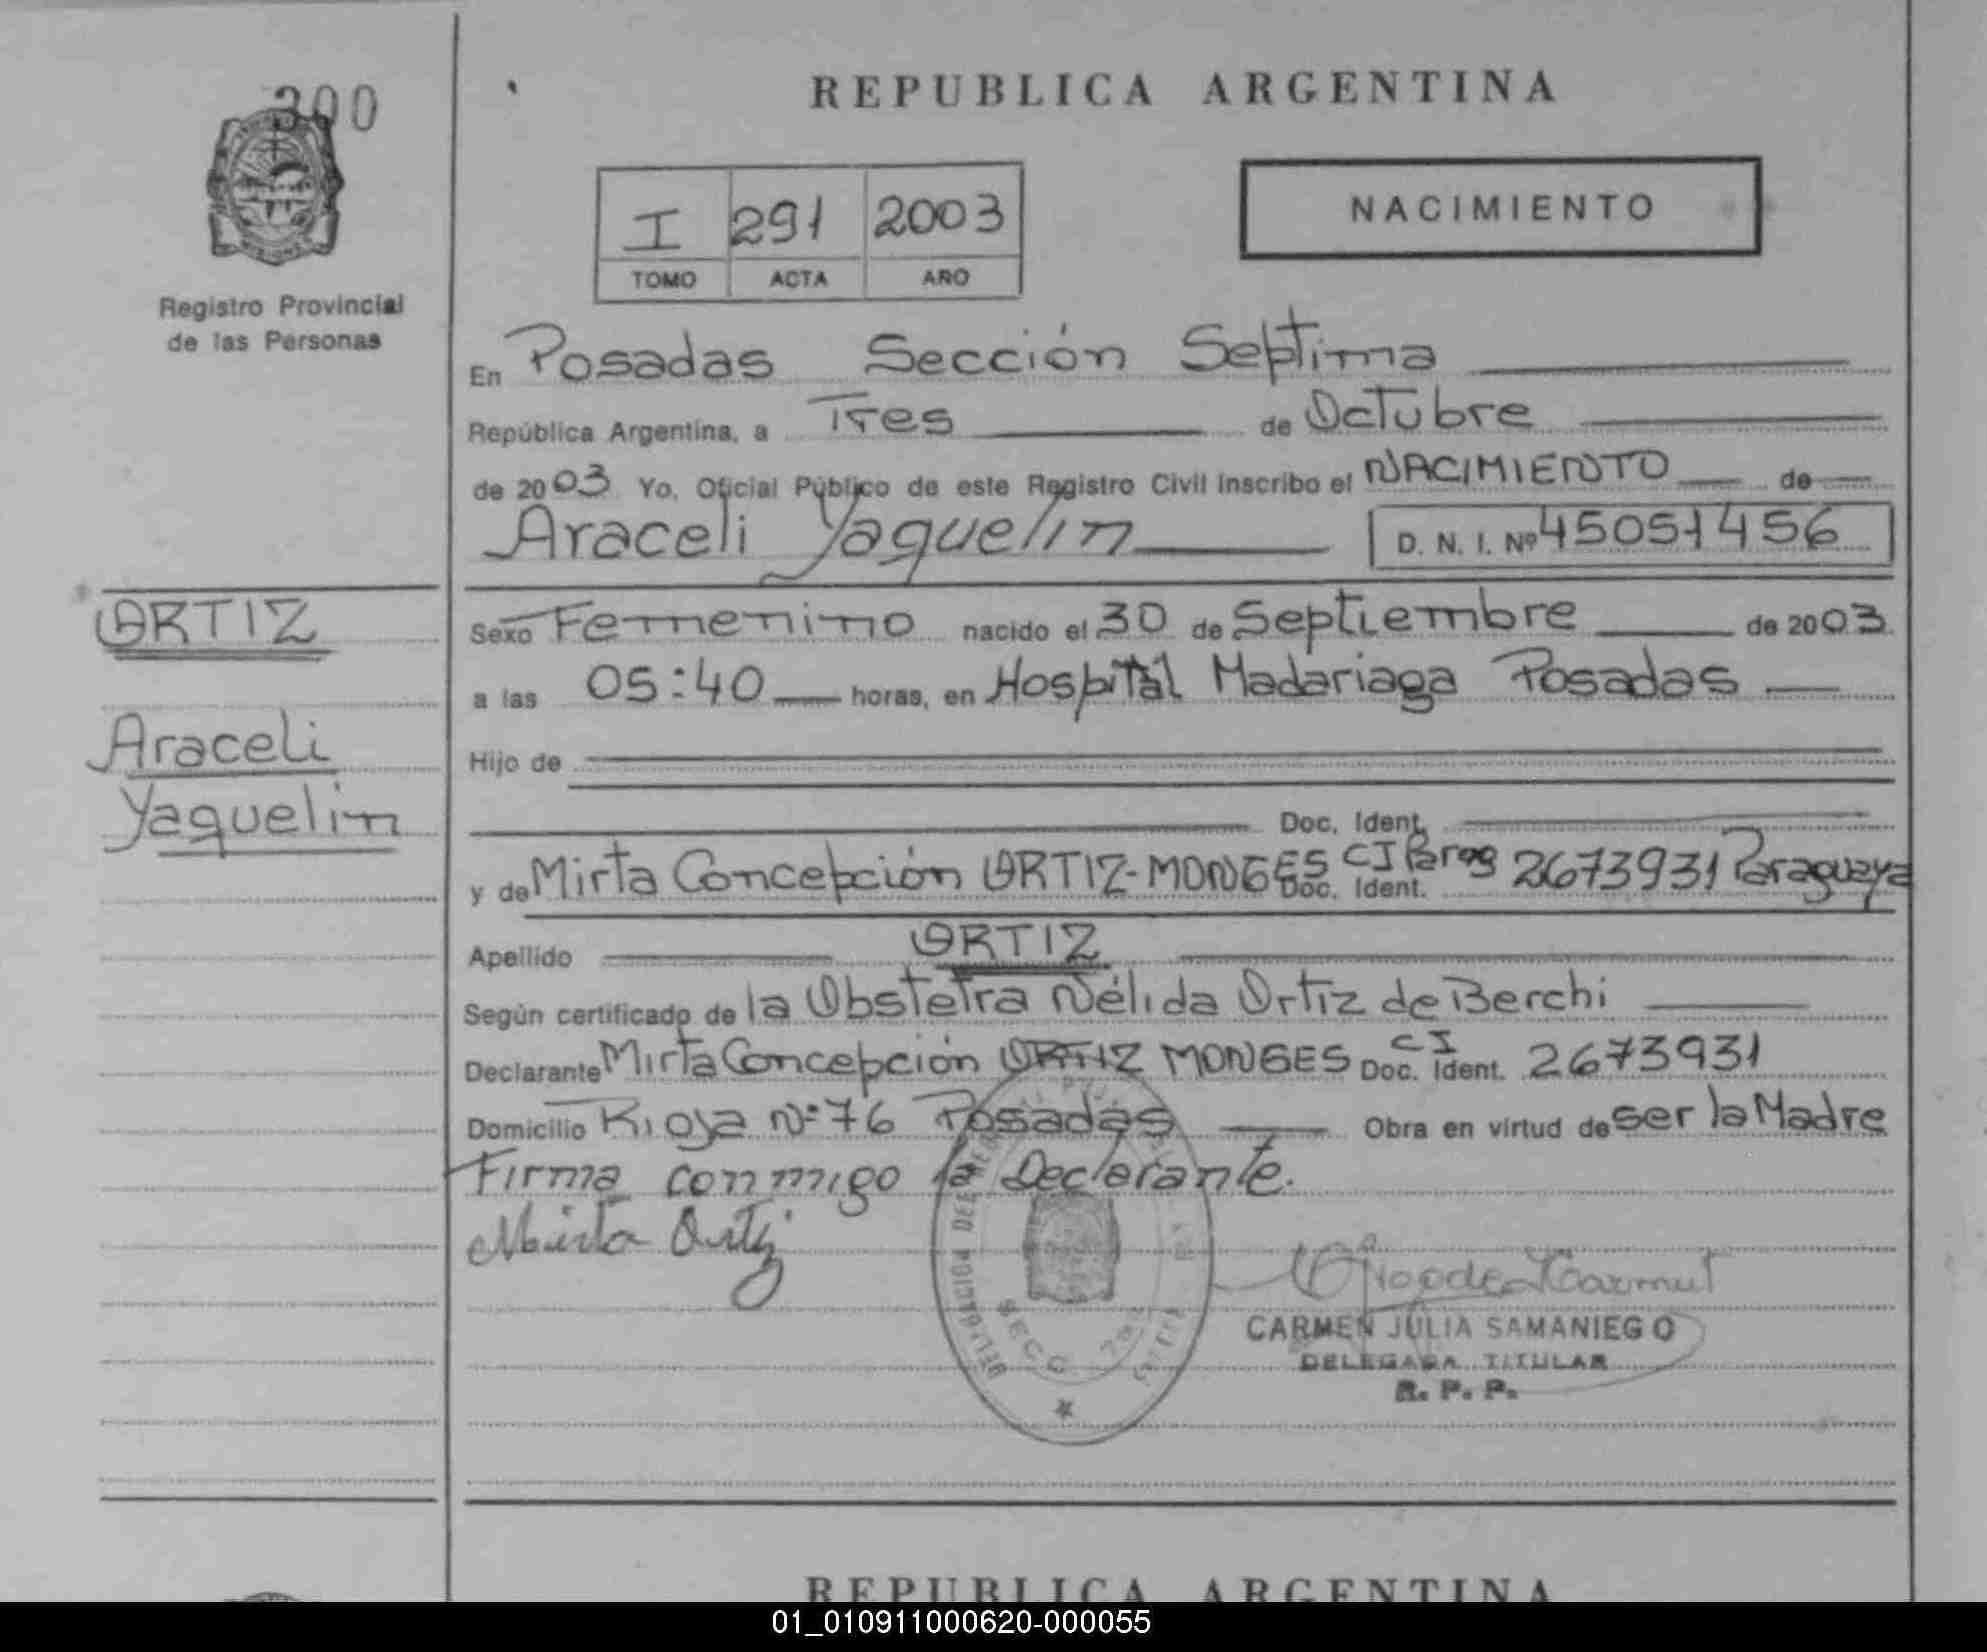 200
REPUBLICA ARGENTINA
I 291 2003
TOMO ACTA AÑO
NACIMIENTO
Registro Provincial
de las Personas
En Posadas Sección Septima
República Argentina, a Tres de Octubre
de 2003 Yo, Oficial Público de este Registro Civil inscribo el NACIMIENTO de
Araceli Yaquelin D. N. I. Nº 45051456
ORTIZ
Araceli
Yaquelin
Sexo Femenino nacido el 30 de Septiembre de 2003
a las 05:40 horas, en Hospital Madariaga Posadas
Hijo de
Doc. Ident.
y de Mirta Concepción ORTIZ-MONGES CI Parag Doc. Ident. 2673931 Paraguaya
Apellido ORTIZ
Según certificado de la Obstetra Nélida Ortiz de Berchi
Declarante Mirta Concepción ORTIZ MONGES CI Doc. Ident. 2673931
Domicilio Rioja Nº 76 Posadas Obra en virtud de ser la Madre
Firma conmigo la Declarante.
Mirta Ortiz
DELEGACION DEL
SECC
CARMEN JULIA SAMANIEGO
DELEGADA TITULAR
R. P. P.
REPUBLICA ARGENTINA
01_010911000620-000055